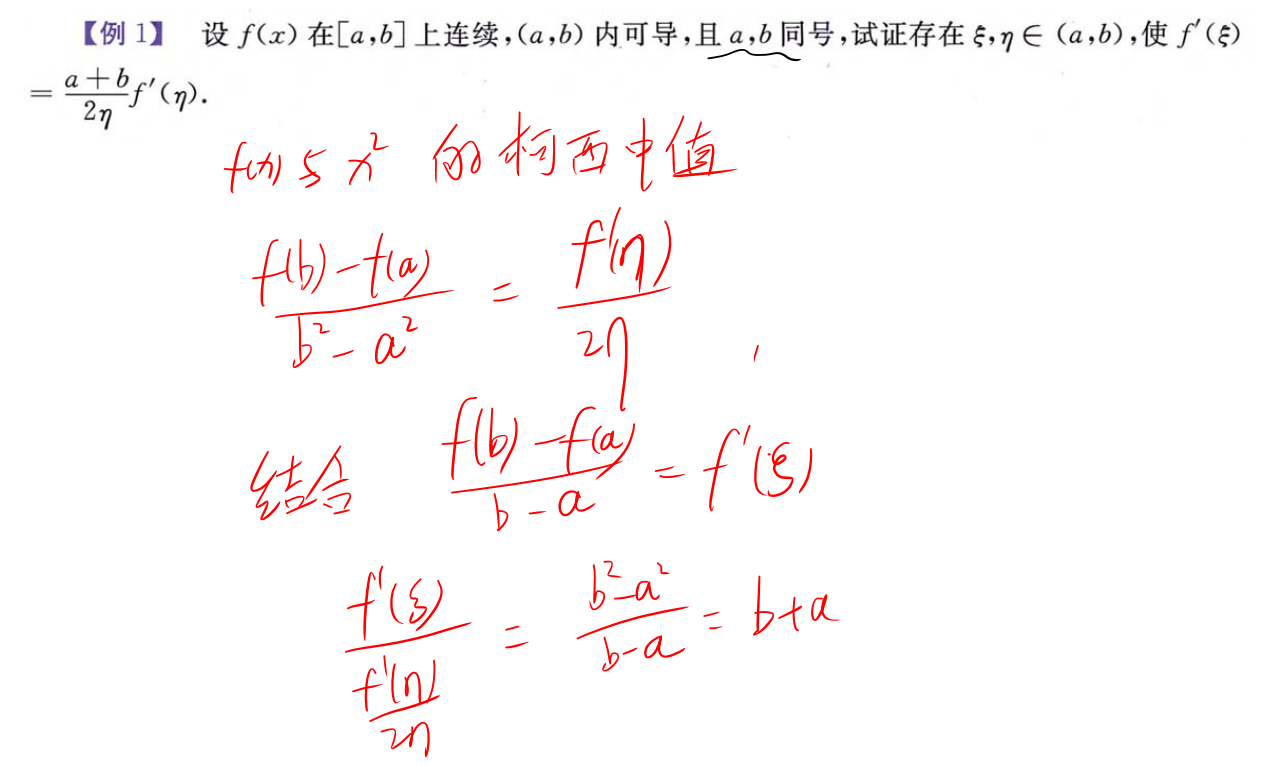 【例1】 设 f(x) 在[a,b]上连续,(a,b)内可导,且 a,b 同号,试证存在 ξ,η∈(a,b),使 f′(ξ)
= \frac{a+b}{2η}f′(η).
f(x)与 x² 的柯西中值
\frac{f(b)-f(a)}{b²-a²} = \frac{f'(η)}{2η}
结合 \frac{f(b)-f(a)}{b-a} = f'(ξ)
\frac{f'(ξ)}{\frac{f'(η)}{2η}} = \frac{b²-a²}{b-a} = b+a